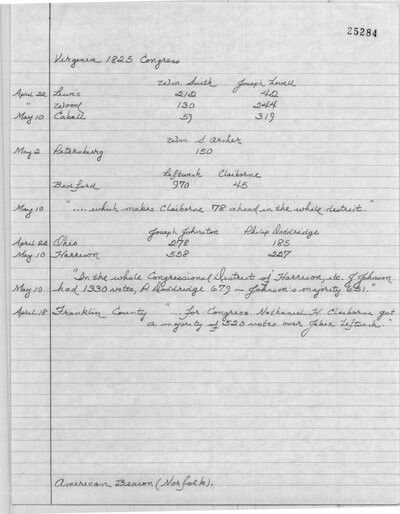 25284
Virginia 1825 Congress
Wm Smith Joseph Lovell
April 22 Lewis 212 42
" Wood 130 244
May 10 Cabell 59 319
Wm S. Archer
May 2 Petersburg 150
Leftwich Claiborne
Bedford 970 45
May 10 ".... which makes Claiborne 78 ahead in the whole district."
Joseph Johnston Philip Doddridge
April 22 Ohio 278 185
May 10 Harrison 558 227
"In the whole Congressional District of Harrison, etc. J Johnson
May 10 had 1330 votes, P Doddridge 679 — Johnson's majority 651."
April 18 Franklin County ".... for Congress, Nathaniel H. Claiborne got
a majority of 520 votes over Jabez Leftwich."
American Beacon (Norfolk).